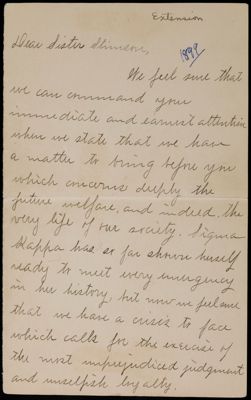 Extension
1899
Dear Sister Stinson,
We feel sure that
we can command your
immediate and earnest attention
when we state that we have
a matter to bring before you
which concerns deeply the
future welfare, and indeed, the
very life of our society. Sigma
Kappa has so far shown herself
ready to meet every emergency
in her history, but now we feel sure
that we have a crisis to face
which calls for the exercise of
the most unprejudiced judgment
and unselfish loyalty.